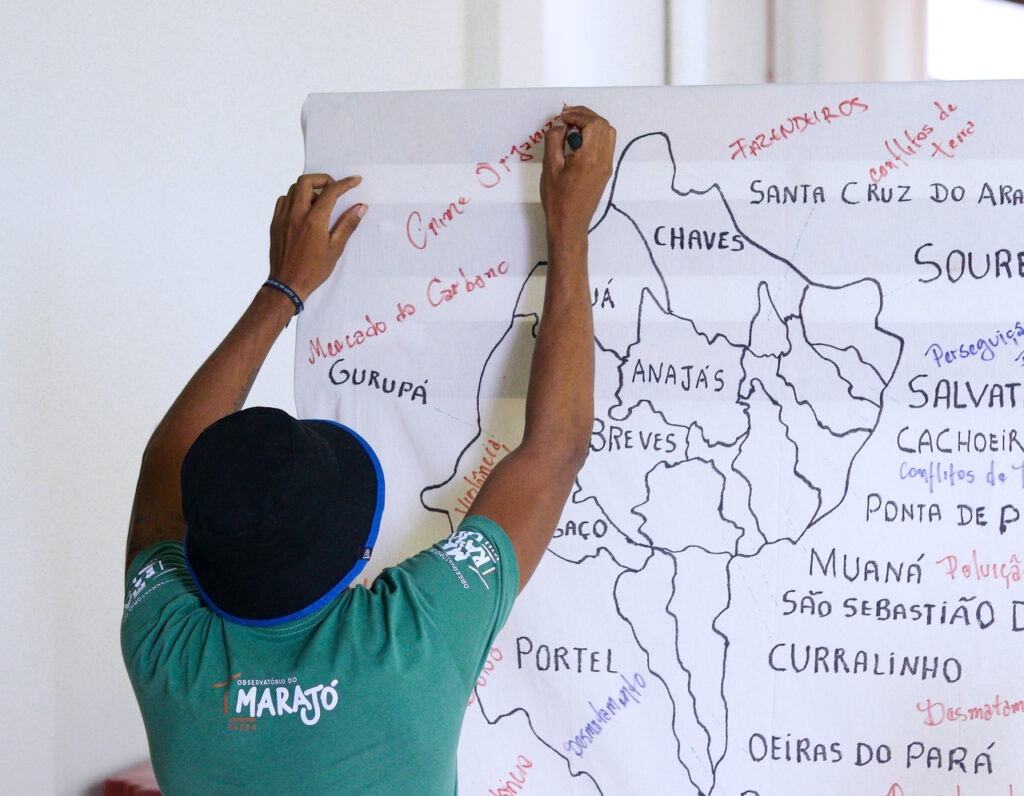 FAZENDEIROS
conflitos de
terra
Crime Organiz
SANTA CRUZ DO ARA
CHAVES
SOURE
Mercado do Carbono
UÁ
GURUPÁ
Perseguiçã
ANAJÁS
SALVAT
BREVES
CACHOEIR
conflitos de
Violência
PONTA DE P
BAÇO
MUANÁ
Poluiçã
SÃO SEBASTIÃO D
PORTEL
CURRALINHO
Desmatamento
Desmatam
OEIRAS DO PARÁ
OBSERVATÓRIO DO
MARAJÓ